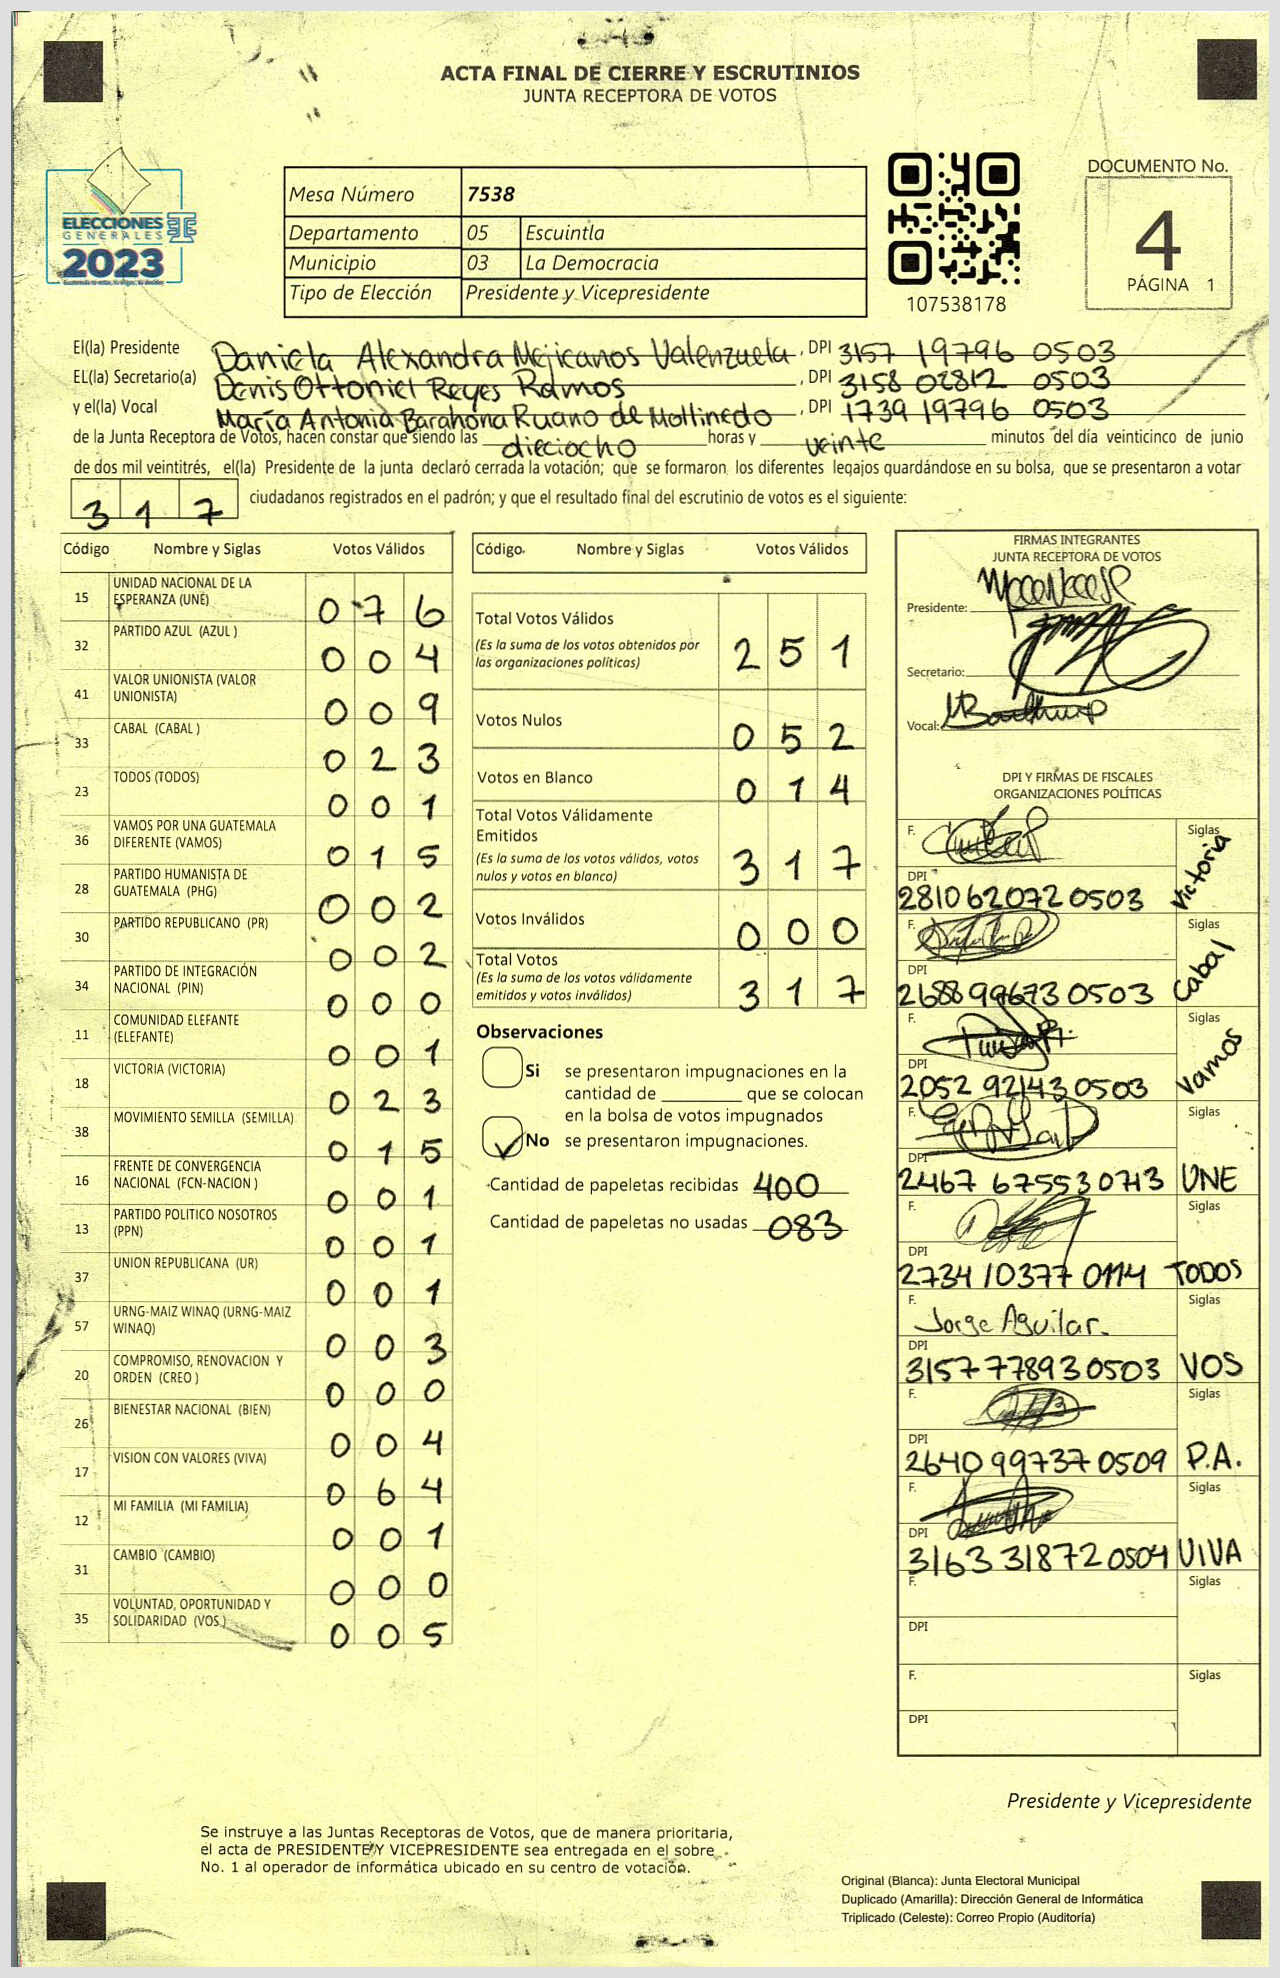 ACTA FINAL DE CIERRE Y ESCRUTINIOS
JUNTA RECEPTORA DE VOTOS
ELECCIONES
GENERALES
2023
Mesa Número 7538
Departamento 05 Escuintla
Municipio 03 La Democracia
Tipo de Elección Presidente y Vicepresidente
107538178
DOCUMENTO No.
4
PÁGINA 1
El(la) Presidente Daniela Alexandra Mejicanos Valenzuela, DPI 3157 19796 0503
EL(la) Secretario(a) Denis Ottoniel Reyes Ramos, DPI 3158 02812 0503
y el(la) Vocal María Antonia Barahona Ruano de Mollinedo, DPI 1739 19796 0503
de la Junta Receptora de Votos, hacen constar que siendo las dieciocho horas y veinte minutos del día veinticinco de junio
de dos mil veintitrés, el(la) Presidente de la junta declaró cerrada la votación; que se formaron los diferentes legajos guardándose en su bolsa, que se presentaron a votar
3 1 7 ciudadanos registrados en el padrón; y que el resultado final del escrutinio de votos es el siguiente:
Código Nombre y Siglas Votos Válidos
15 UNIDAD NACIONAL DE LA
ESPERANZA (UNE) 0 7 6
32 PARTIDO AZUL (AZUL ) 0 0 4
41 VALOR UNIONISTA (VALOR
UNIONISTA) 0 0 9
33 CABAL (CABAL ) 0 2 3
23 TODOS (TODOS) 0 0 1
36 VAMOS POR UNA GUATEMALA
DIFERENTE (VAMOS) 0 1 5
28 PARTIDO HUMANISTA DE
GUATEMALA (PHG) 0 0 2
30 PARTIDO REPUBLICANO (PR) 0 0 2
34 PARTIDO DE INTEGRACIÓN
NACIONAL (PIN) 0 0 0
11 COMUNIDAD ELEFANTE
(ELEFANTE) 0 0 1
18 VICTORIA (VICTORIA) 0 2 3
38 MOVIMIENTO SEMILLA (SEMILLA) 0 1 5
16 FRENTE DE CONVERGENCIA
NACIONAL (FCN-NACION ) 0 0 1
13 PARTIDO POLITICO NOSOTROS
(PPN) 0 0 1
37 UNION REPUBLICANA (UR) 0 0 1
57 URNG-MAIZ WINAQ (URNG-MAIZ
WINAQ) 0 0 3
20 COMPROMISO, RENOVACION Y
ORDEN (CREO ) 0 0 0
26 BIENESTAR NACIONAL (BIEN) 0 0 4
17 VISION CON VALORES (VIVA) 0 6 4
12 MI FAMILIA (MI FAMILIA) 0 0 1
31 CAMBIO (CAMBIO) 0 0 0
35 VOLUNTAD, OPORTUNIDAD Y
SOLIDARIDAD (VOS ) 0 0 5
Código Nombre y Siglas Votos Válidos
Total Votos Válidos
(Es la suma de los votos obtenidos por
las organizaciones políticas) 2 5 1
Votos Nulos 0 5 2
Votos en Blanco 0 1 4
Total Votos Válidamente
Emitidos
(Es la suma de los votos válidos, votos
nulos y votos en blanco) 3 1 7
Votos Inválidos 0 0 0
Total Votos
(Es la suma de los votos válidamente
emitidos y votos inválidos) 3 1 7
Observaciones
Si se presentaron impugnaciones en la
cantidad de ________ que se colocan
en la bolsa de votos impugnados
No se presentaron impugnaciones.
Cantidad de papeletas recibidas 400
Cantidad de papeletas no usadas 083
FIRMAS INTEGRANTES
JUNTA RECEPTORA DE VOTOS
Presidente:
Secretario:
Vocal:
DPI Y FIRMAS DE FISCALES
ORGANIZACIONES POLÍTICAS
F. Siglas
DPI
281062072 0503 Victoria
F. Siglas
DPI
2688 99673 0503 Cabal
F. Siglas
DPI
2052 92143 0503 Vamos
F. Siglas
DPI
2467 67553 0713 UNE
F. Siglas
DPI
2734 10377 0114 TODOS
F. Jorge Aguilar. Siglas
DPI
3157 77893 0503 VOS
F. Siglas
DPI
2640 99737 0509 P.A.
F. Siglas
DPI
3163 31872 0504 VIVA
F. Siglas
DPI
F. Siglas
DPI
Presidente y Vicepresidente
Se instruye a las Juntas Receptoras de Votos, que de manera prioritaria,
el acta de PRESIDENTE Y VICEPRESIDENTE sea entregada en el sobre
No. 1 al operador de informática ubicado en su centro de votación.
Original (Blanca): Junta Electoral Municipal
Duplicado (Amarilla): Dirección General de Informática
Triplicado (Celeste): Correo Propio (Auditoría)